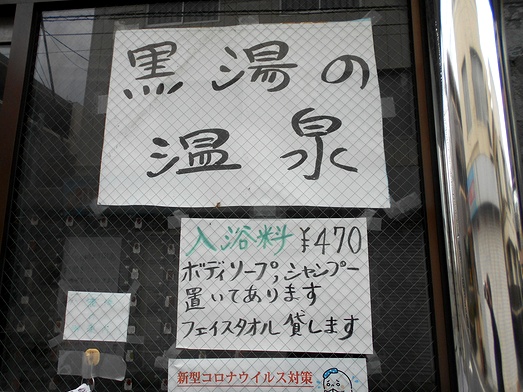 黒湯の
温泉
入浴料 ¥470
ボディソープ,シャンプー
置いてあります
フェイスタオル貸します
新型コロナウイルス対策